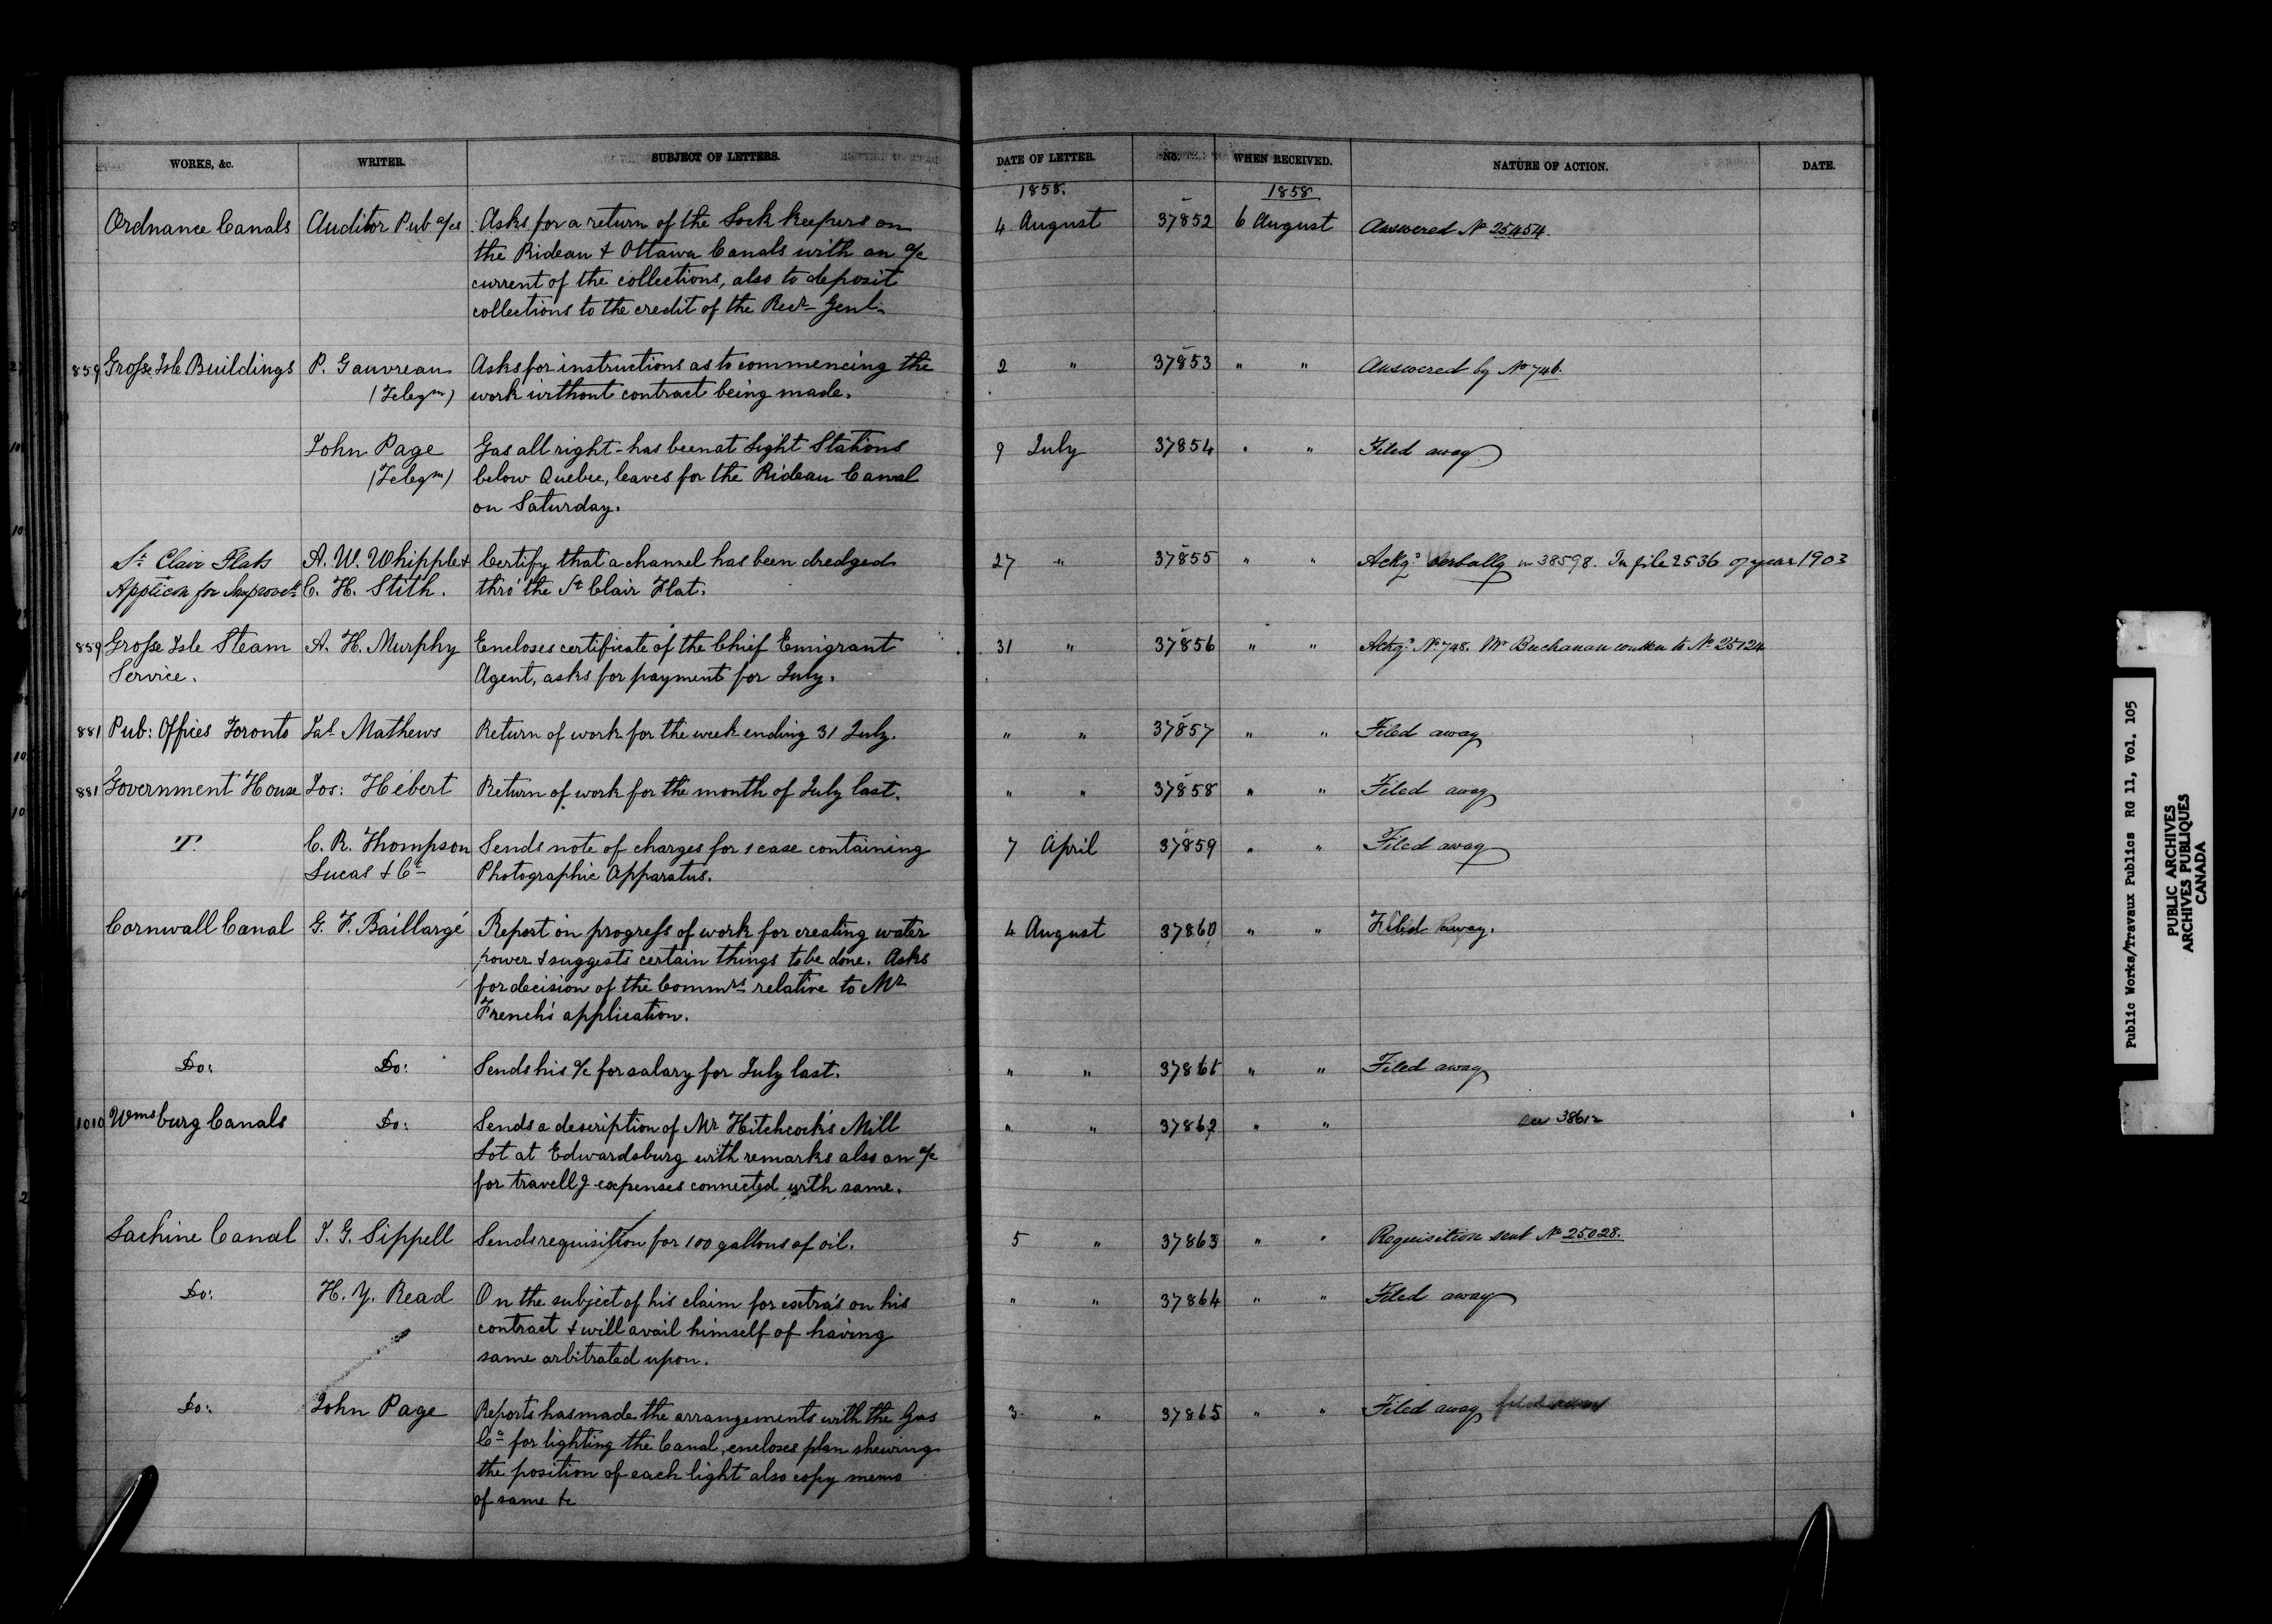 WORKS, &c. WRITER. SUBJECT OF LETTERS. DATE OF LETTER. No. WHEN RECEIVED. NATURE OF ACTION. DATE.
1858. 1858
Ordnance Canals Auditor Pub a/cs Asks for a return of the Lock keepers on 4 August 37852 6 August Answered No 25454.
the Rideau & Ottawa Canals with an a/c
current of the collections, also to deposit
collections to the credit of the Recr Genl.
859 Grosse Isle Buildings P. Gauvreau Asks for instructions as to commencing the 2 " 37853 " " Answered by No 746.
(Telegm) work without contract being made.
John Page Gas all right - has been at Light Stations 9 July 37854 " " Filed away
(Telegm) below Quebec, leaves for the Rideau Canal
on Saturday.
St Clair Flats A. W. Whipple & Certify that a channel has been dredged 27 " 37855 " " Ackg. Verbally 38598. In file 2536 of year 1903
Applicon for Improvets C. H. Stith. thro' the St Clair Flat.
859 Grosse Isle Steam A. H. Murphy Encloses certificate of the Chief Emigrant 31 " 37856 " " Ackg. No 748. Mr Buchanan written to No 25124
Service. Agent, asks for payment for July.
881 Pub: Offices Toronto Jas Mathews Return of work for the week ending 31 July. " " 37857 " " Filed away
881 Government House Jos: Hébert Return of work for the month of July last. " " 37858 " " Filed away
T. C. R. Thompson Sends note of charges for 1 case containing 7 April 37859 " " Filed away
Lucas & Co Photographic Apparatus.
Cornwall Canal G. F. Baillargé Report on progress of work for creating water 4 August 37860 " " Filed away.
power & suggests certain things to be done. Asks
for decision of the Commrs relative to Mr
French's application.
Do: Do: Sends his a/c for salary for July last. " " 37861 " " Filed away
1010 Wmsburg Canals Do: Sends a description of Mr Hitchcock's Mill " " 37862 " " See 38612
Lot at Edwardsburg with remarks also an a/c
for travellg expenses connected with same.
Lachine Canal J. G. Sippell Sends requisition for 100 gallons of oil. 5 " 37863 " " Requisition sent No 25028.
Do: H. Y. Read On the subject of his claim for extra's on his " " 37864 " " Filed away
contract & will avail himself of having
same arbitrated upon.
Do: John Page Reports has made the arrangements with the Gas 3 " 37865 " " Filed away filed away
Co for lighting the Canal, encloses plan shewing
the position of each light also copy memo
of same &c
Public Works/Travaux Publics RG 11, Vol. 105
PUBLIC ARCHIVES
ARCHIVES PUBLIQUES
CANADA